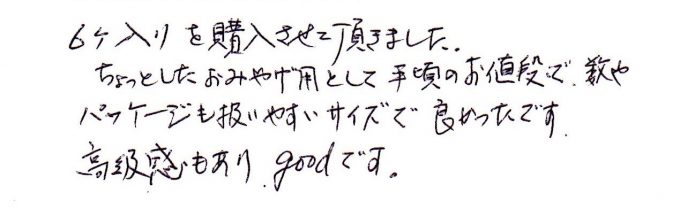 6ヶ入りを購入させて頂きました.
ちょっとしたおみやげ用として手頃のお値段で、数や
パッケージも扱いやすいサイズで良かったです.
高級感もあり、goodです。